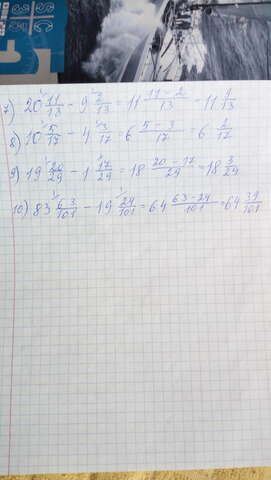 7) 20 11/13 - 9 2/13 = 11 (11 - 2)/13 = 11 9/13
8) 10 5/17 - 4 3/17 = 6 (5 - 3)/17 = 6 2/17
9) 19 20/29 - 1 17/29 = 18 (20 - 17)/29 = 18 3/29
10) 83 63/101 - 19 24/101 = 64 (63 - 24)/101 = 64 39/101